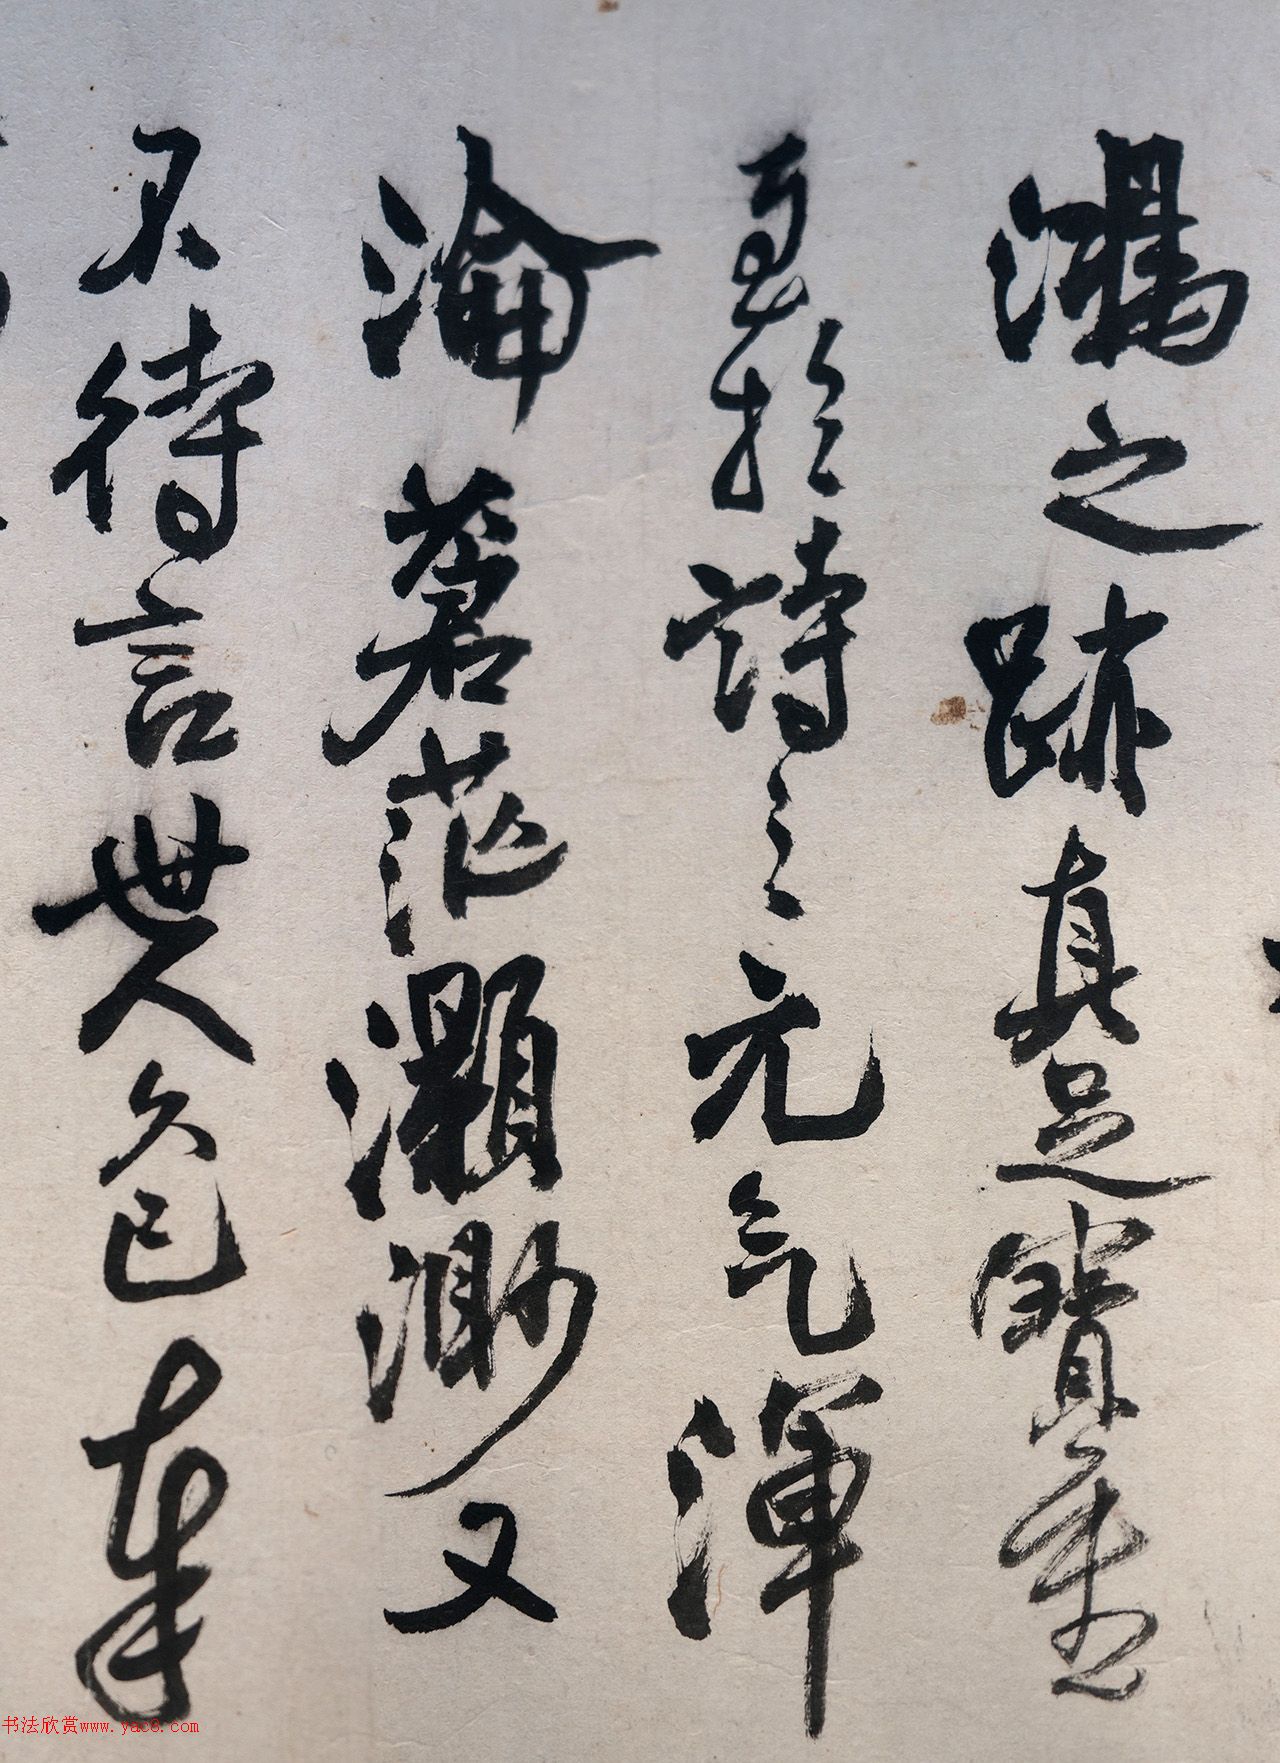 之跡真足寶重
至於詩之元气渾
淪蒼茫灝渺又
不待言世人久已奉
书法欣赏www.yac8.com